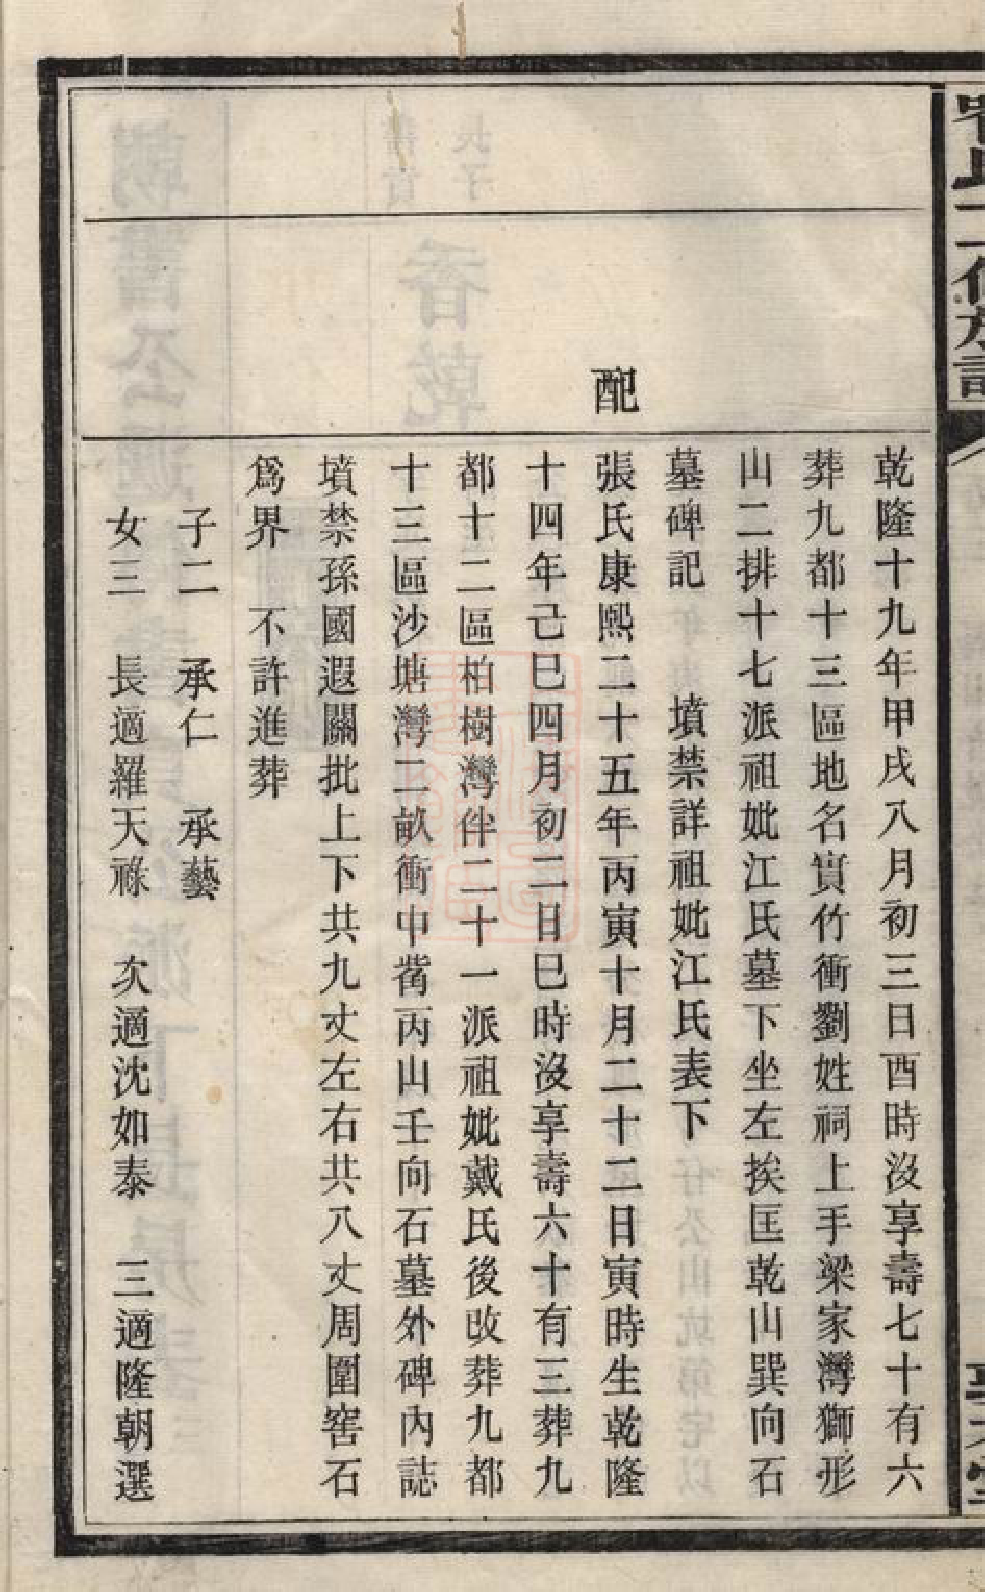 乾隆十九年甲戌八月初三日酉時沒享壽七十有六
葬九都十三區地名實竹衝劉姓祠上手梁家灣獅形
山二排十七派祖妣江氏墓下坐左挨匡乾山巽向石
墓碑記 墳禁詳祖妣江氏表下
配
張氏康熙二十五年丙寅十月二十二日寅時生乾隆
十四年己巳四月初二日巳時沒享壽六十有三葬九
都十二區柏樹灣伴二十一派祖妣戴氏後改葬九都
十三區沙塘灣二畝衝中嘴丙山壬向石墓外碑內誌
墳禁孫國遐關批上下共九丈左右共八丈周圍窖石
爲界 不許進葬
子二 承仁 承藝
女三 長適羅天祿 次適沈如泰 三適隆朝選